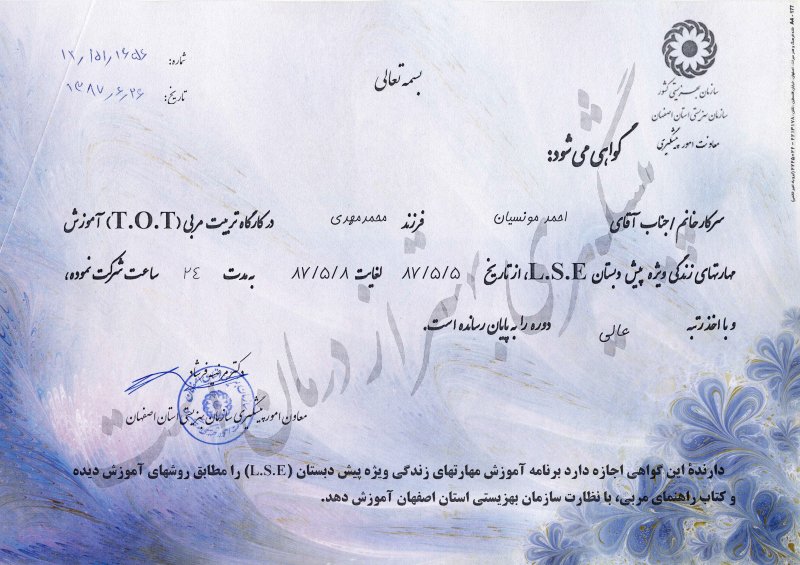 سازمان بهزیستی کشور
سازمان بهزیستی استان اصفهان
معاونت امور پیشگیری
بسمه تعالی
شماره:
تاریخ: ۱۳۸۷٫۶٫۲۶
گواهی می شود:
سرکار خانم / جناب آقای احمد مونسیان فرزند محمدمهدی در کارگاه تربیت مربی (T.O.T) آموزش
مهارتهای زندگی ویژه پیش دبستان L.S.E، از تاریخ ۸۷/۵/۵ لغایت ۸۷/۵/۸ به مدت ۲٤ ساعت شرکت نموده،
و با اخذ رتبه عالی دوره را به پایان رسانده است.
پیشگیری بهتر از درمان است
معاون امور پیشگیری سازمان بهزیستی استان اصفهان
دارندهٔ این گواهی اجازه دارد برنامه آموزش مهارتهای زندگی ویژه پیش دبستان (L.S.E) را مطابق روشهای آموزش دیده
و کتاب راهنمای مربی، با نظارت سازمان بهزیستی استان اصفهان آموزش دهد.